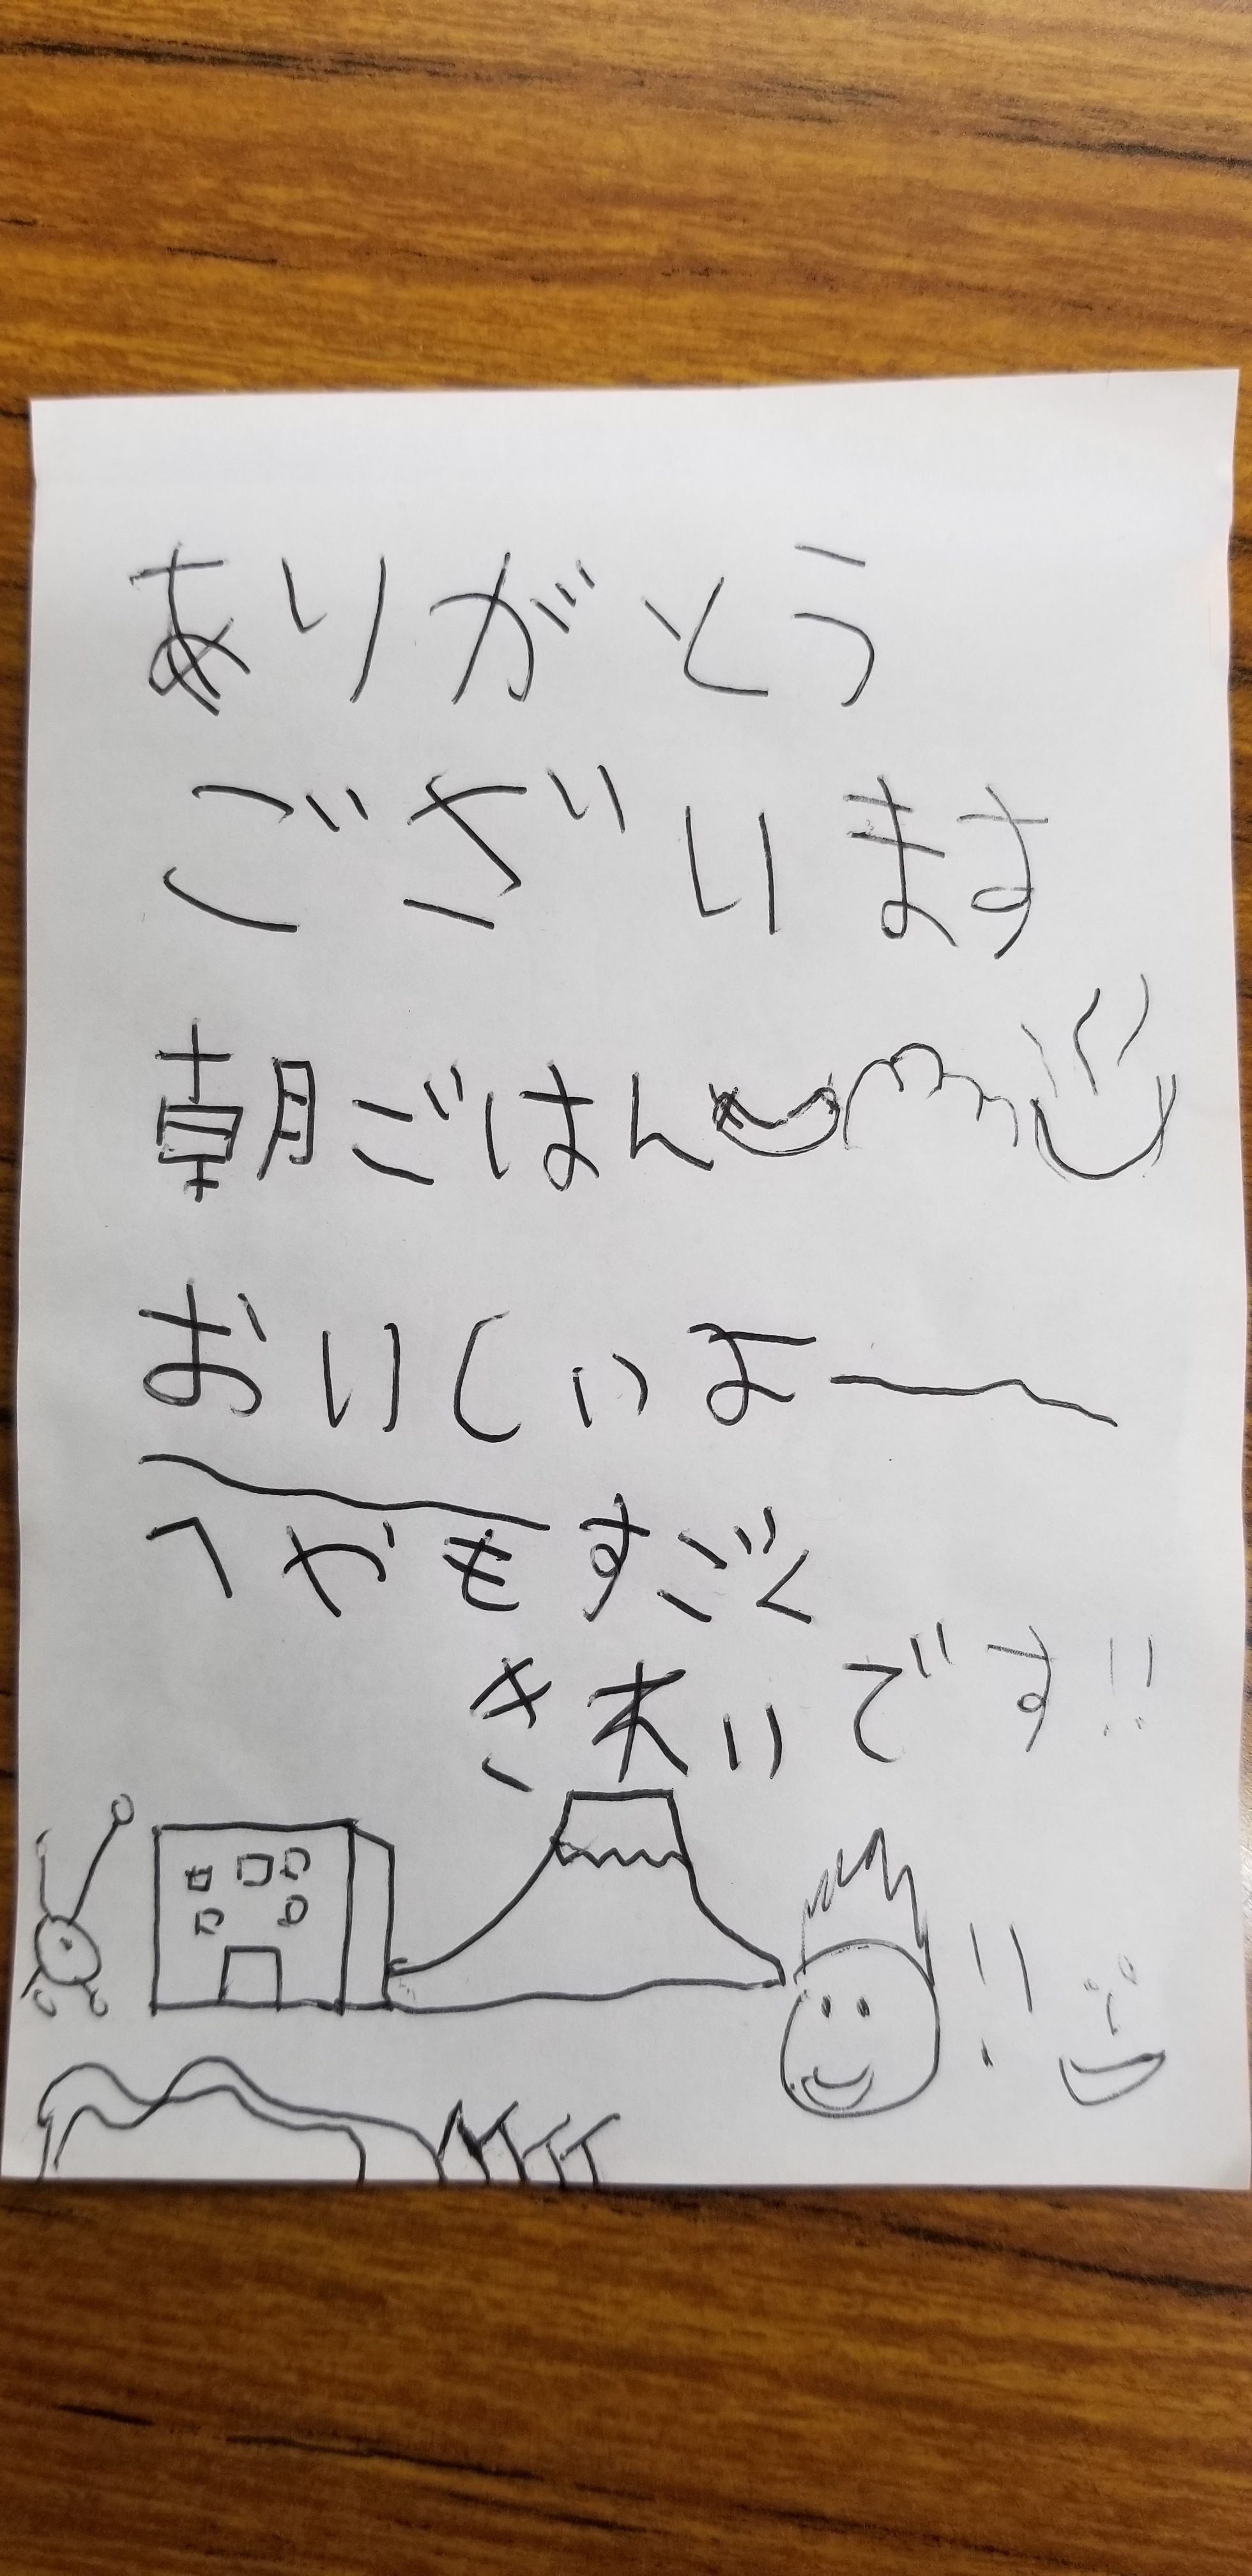 ありがとう
ございます
朝ごはん
おいしいよー
へやもすごく
きれいです!!
!!